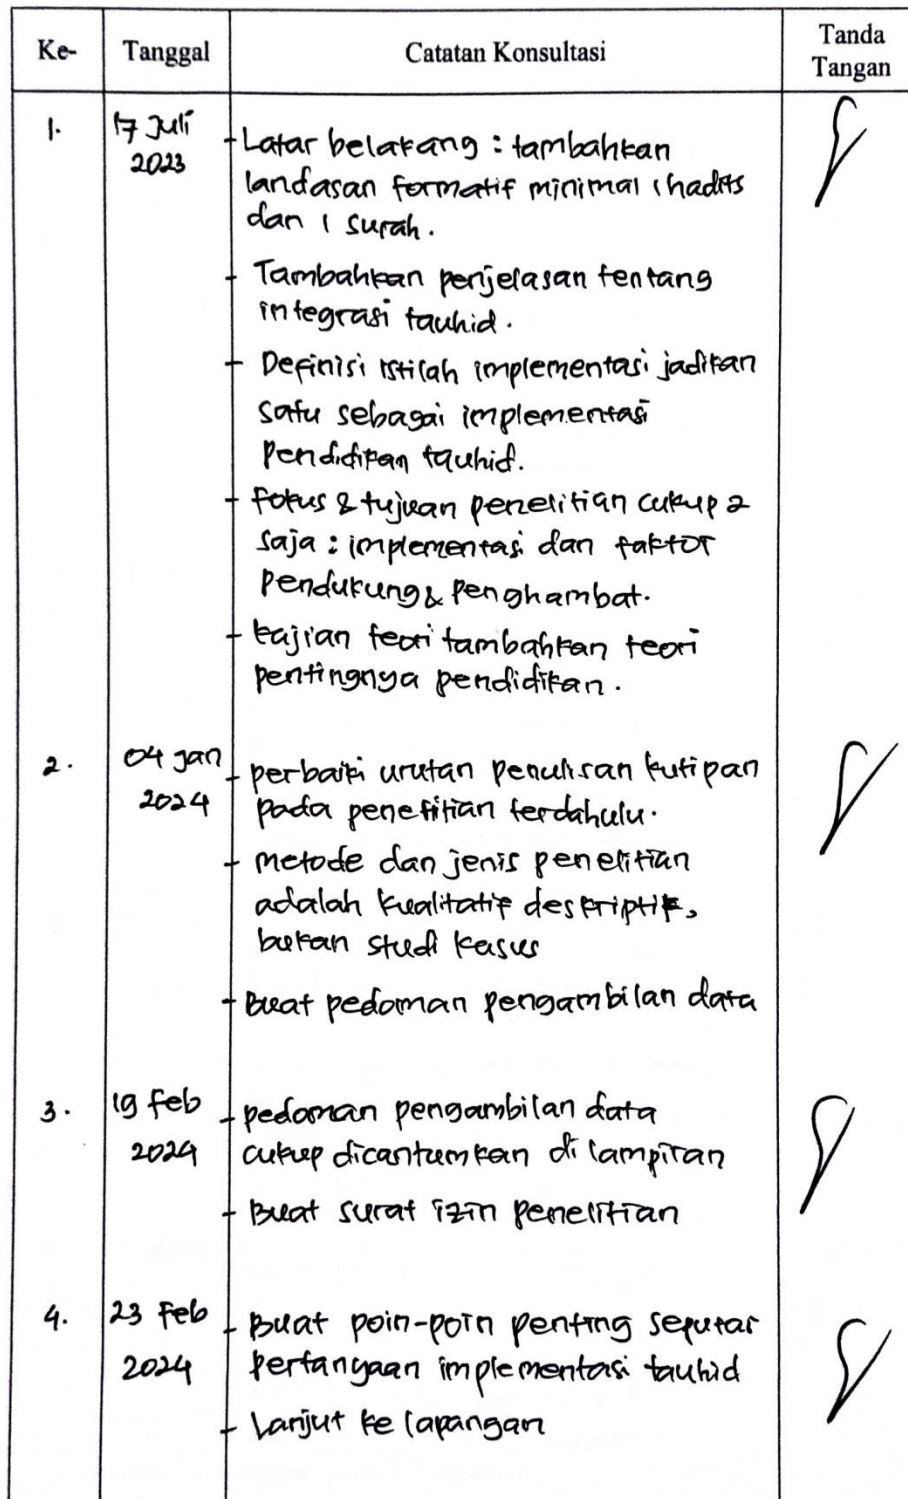 Ke- Tanggal Catatan Konsultasi Tanda Tangan
1. 17 Juli 2023
- Latar belakang : tambahkan
landasan formatif minimal 1 hadits
dan 1 surah.
- Tambahkan penjelasan tentang
integrasi tauhid.
- Definisi istilah implementasi jadikan
satu sebagai implementasi
Pendidikan tauhid.
- Fokus & tujuan penelitian cukup 2
saja : implementasi dan faktor
Pendukung & Penghambat.
- Kajian teori tambahkan teori
pentingnya pendidikan.
2. 04 Jan 2024
- perbaiki urutan penulisan kutipan
pada penelitian terdahulu.
- metode dan jenis penelitian
adalah kualitatif deskriptif,
bukan studi kasus
- Buat pedoman pengambilan data
3. 19 Feb 2024
- pedoman pengambilan data
cukup dicantumkan di lampiran
- Buat surat izin penelitian
4. 23 Feb 2024
- Buat poin-poin penting seputar
pertanyaan implementasi tauhid
- Lanjut ke lapangan